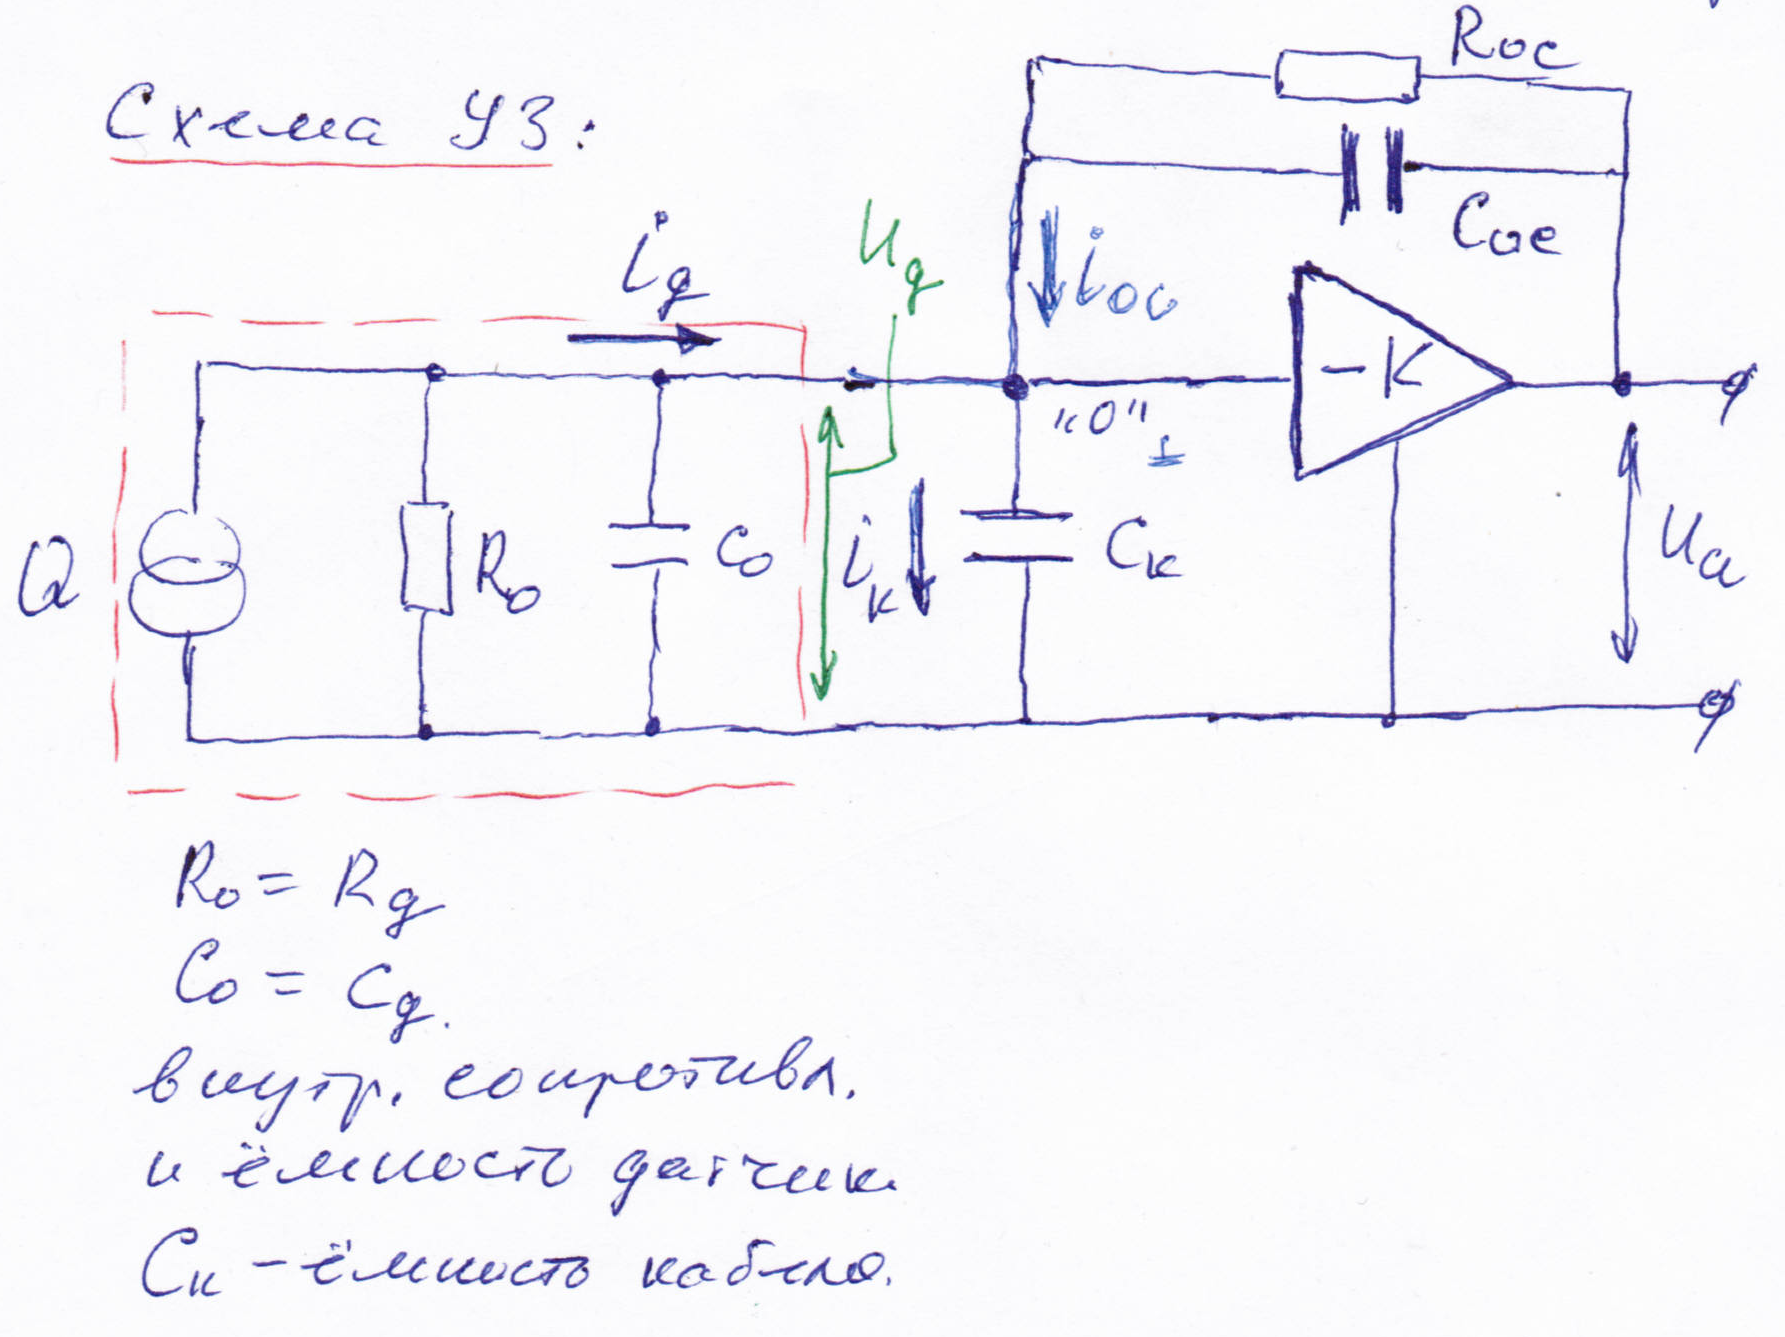 Схема УЗ:
Rос
Cос
iд
Uд
iос
-K
"0"
Q
R₀
C₀
iк
Cк
Uа
R₀ = Rд
C₀ = Cд.
внутр. сопротивл.
и ёмкость датчик.
Cк - ёмкость кабеля.